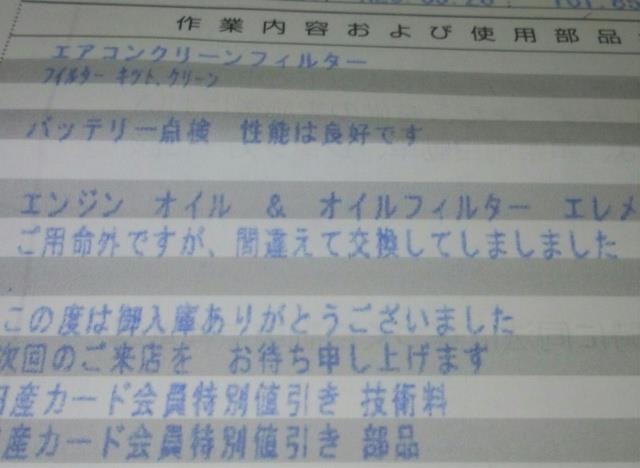 作業内容および使用部品
エアコンクリーンフィルター
フィルター キット、クリーン
バッテリー点検 性能は良好です
エンジン オイル & オイルフィルター エレメ
ご用命外ですが、間違えて交換してしましました
この度は御入庫ありがとうございました
次回のご来店を お待ち申し上げます
日産カード会員特別値引き 技術料
産カード会員特別値引き 部品